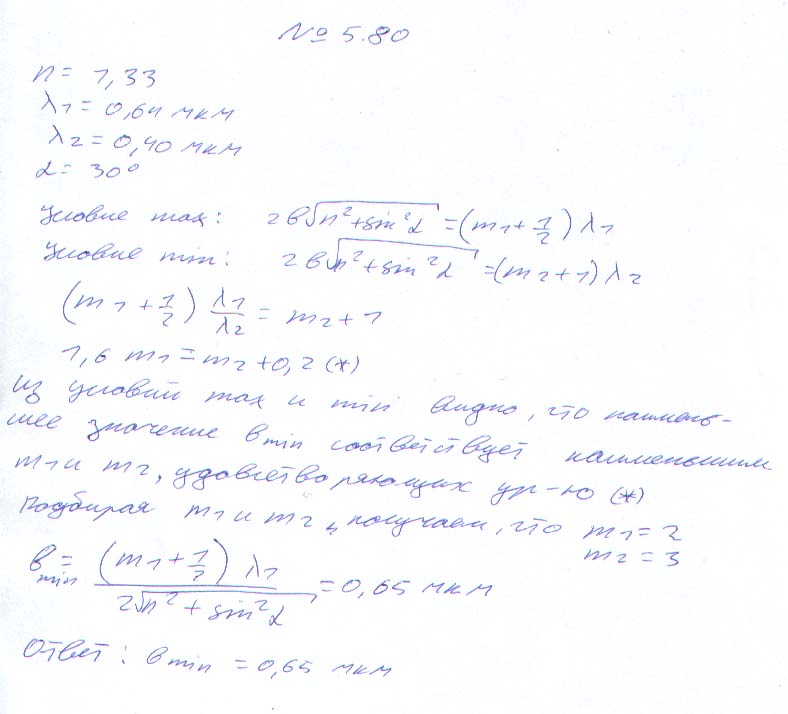 № 5.80
n = 1,33
λ1 = 0,64 мкм
λ2 = 0,40 мкм
α = 30°
Условие max: 2b√(n²+sin²α) = (m1+1/2) λ1
Условие min: 2b√(n²+sin²α) = (m2+1) λ2
(m1 + 1/2) λ1/λ2 = m2 + 1
1,6 m1 = m2 + 0,2 (*)
Из условий max и min видно, что наимень-
шее значение bmin соответствует наименьшим
m1 и m2, удовлетворяющих ур-ю (*)
Подбирая m1 и m2, получаем, что m1 = 2
m2 = 3
bmin = (m1 + 1/2) λ1 / 2√(n² + sin²α) = 0,65 мкм
Ответ: bmin = 0,65 мкм